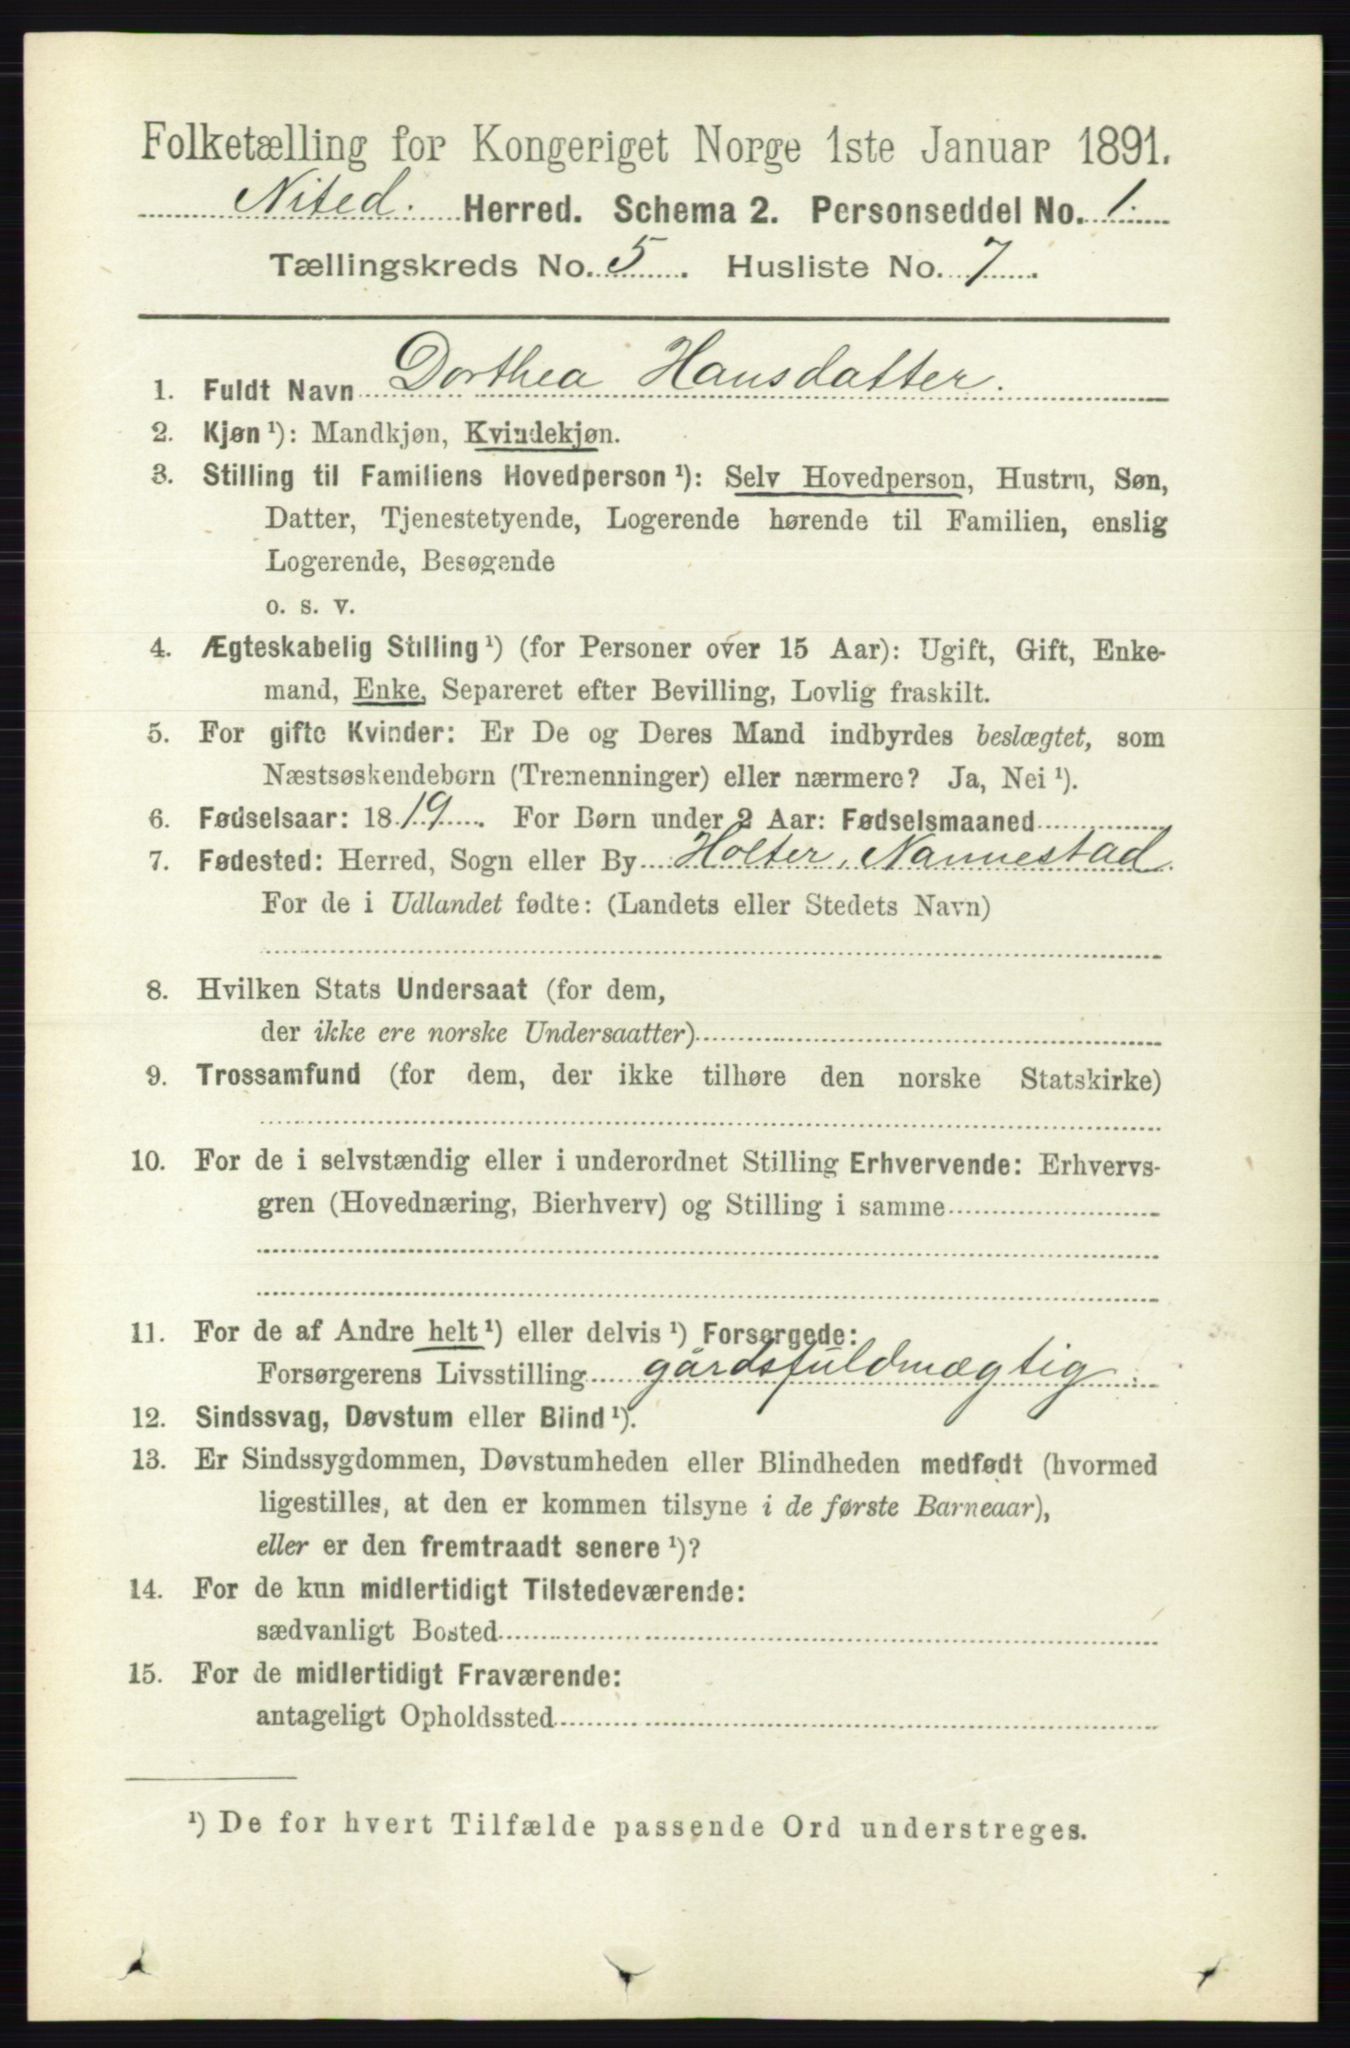 Folketælling for Kongeriget Norge 1ste Januar 1891.
Nited. Herred. Schema 2. Personseddel No. 1.
Tællingskreds No. 5. Husliste No. 7.
1. Fuldt Navn Dorthea Hansdatter.
2. Kjøn ¹): Mandkjøn, Kvindekjøn.
3. Stilling til Familiens Hovedperson ¹): Selv Hovedperson, Hustru, Søn,
Datter, Tjenestetyende, Logerende hørende til Familien, enslig
Logerende, Besøgende
o. s. v.
4. Ægteskabelig Stilling ¹) (for Personer over 15 Aar): Ugift, Gift, Enke-
mand, Enke, Separeret efter Bevilling, Lovlig fraskilt.
5. For gifte Kvinder: Er De og Deres Mand indbyrdes beslægtet, som
Næstsøskendebørn (Tremenninger) eller nærmere? Ja, Nei ¹).
6. Fødselsaar: 1819. For Børn under 2 Aar: Fødselsmaaned
7. Fødested: Herred, Sogn eller By Holter, Nannestad.
For de i Udlandet fødte: (Landets eller Stedets Navn)
8. Hvilken Stats Undersaat (for dem,
der ikke ere norske Undersaatter)
9. Trossamfund (for dem, der ikke tilhøre den norske Statskirke)
10. For de i selvstændig eller i underordnet Stilling Erhvervende: Erhvervs-
gren (Hovednæring, Bierhverv) og Stilling i samme
11. For de af Andre helt ¹) eller delvis ¹) Forsørgede:
Forsørgerens Livsstilling gårdsfuldmægtig.
12. Sindssvag, Døvstum eller Blind ¹).
13. Er Sindssygdommen, Døvstumheden eller Blindheden medfødt (hvormed
ligestilles, at den er kommen tilsyne i de første Barneaar),
eller er den fremtraadt senere ¹)?
14. For de kun midlertidigt Tilstedeværende:
sædvanligt Bosted
15. For de midlertidigt Fraværende:
antageligt Opholdssted
¹) De for hvert Tilfælde passende Ord understreges.